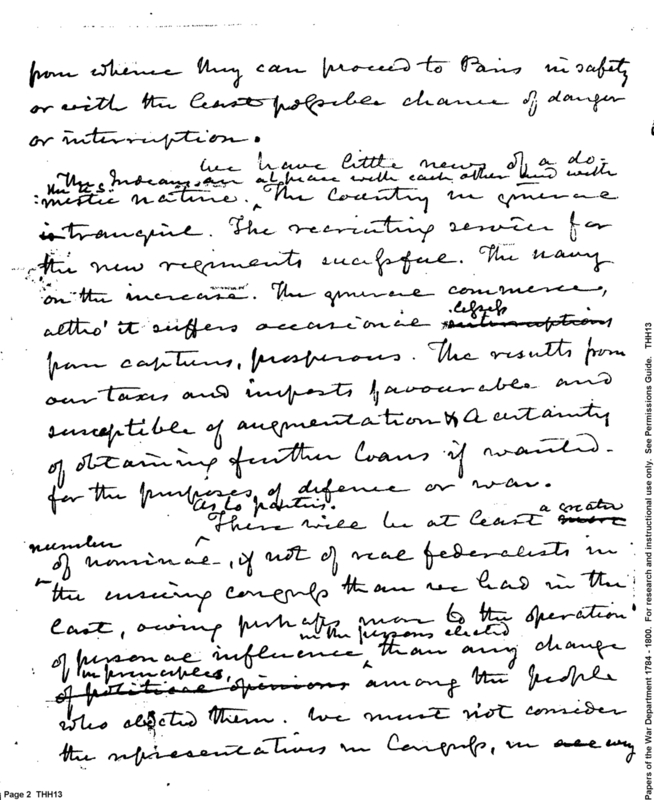 from whence they can proceed to Paris in safety
or with the least possible chance of danger
or interruption.
we have little news of a do-
The Indians are at peace with each other and with
the U.S.
mestic nature. The Country in general
is tranquil. The recruiting service for
the new regiments successful. The navy
on the increase. The general commerce,
altho' it suffers occasional losses
interruptions
from captures, prosperous. The results from
our taxes and imposts favourable and
susceptible of augmentation & A certainty
of obtaining further loans if wanted
for the purposes of defence or war.
As to parties.
There will be at least a greater
more
number
of nominal, if not of real federalists in
the ensuing congress than we had in the
last, owing perhaps more to the operation
of personal influence in the persons elected
than any change
in principles,
of political opinions among the people
who elected them. We must not consider
the representatives in Congress, in
Page 2 THH13
Papers of the War Department 1784 - 1800. For research and instructional use only. See Permissions Guide. THH13